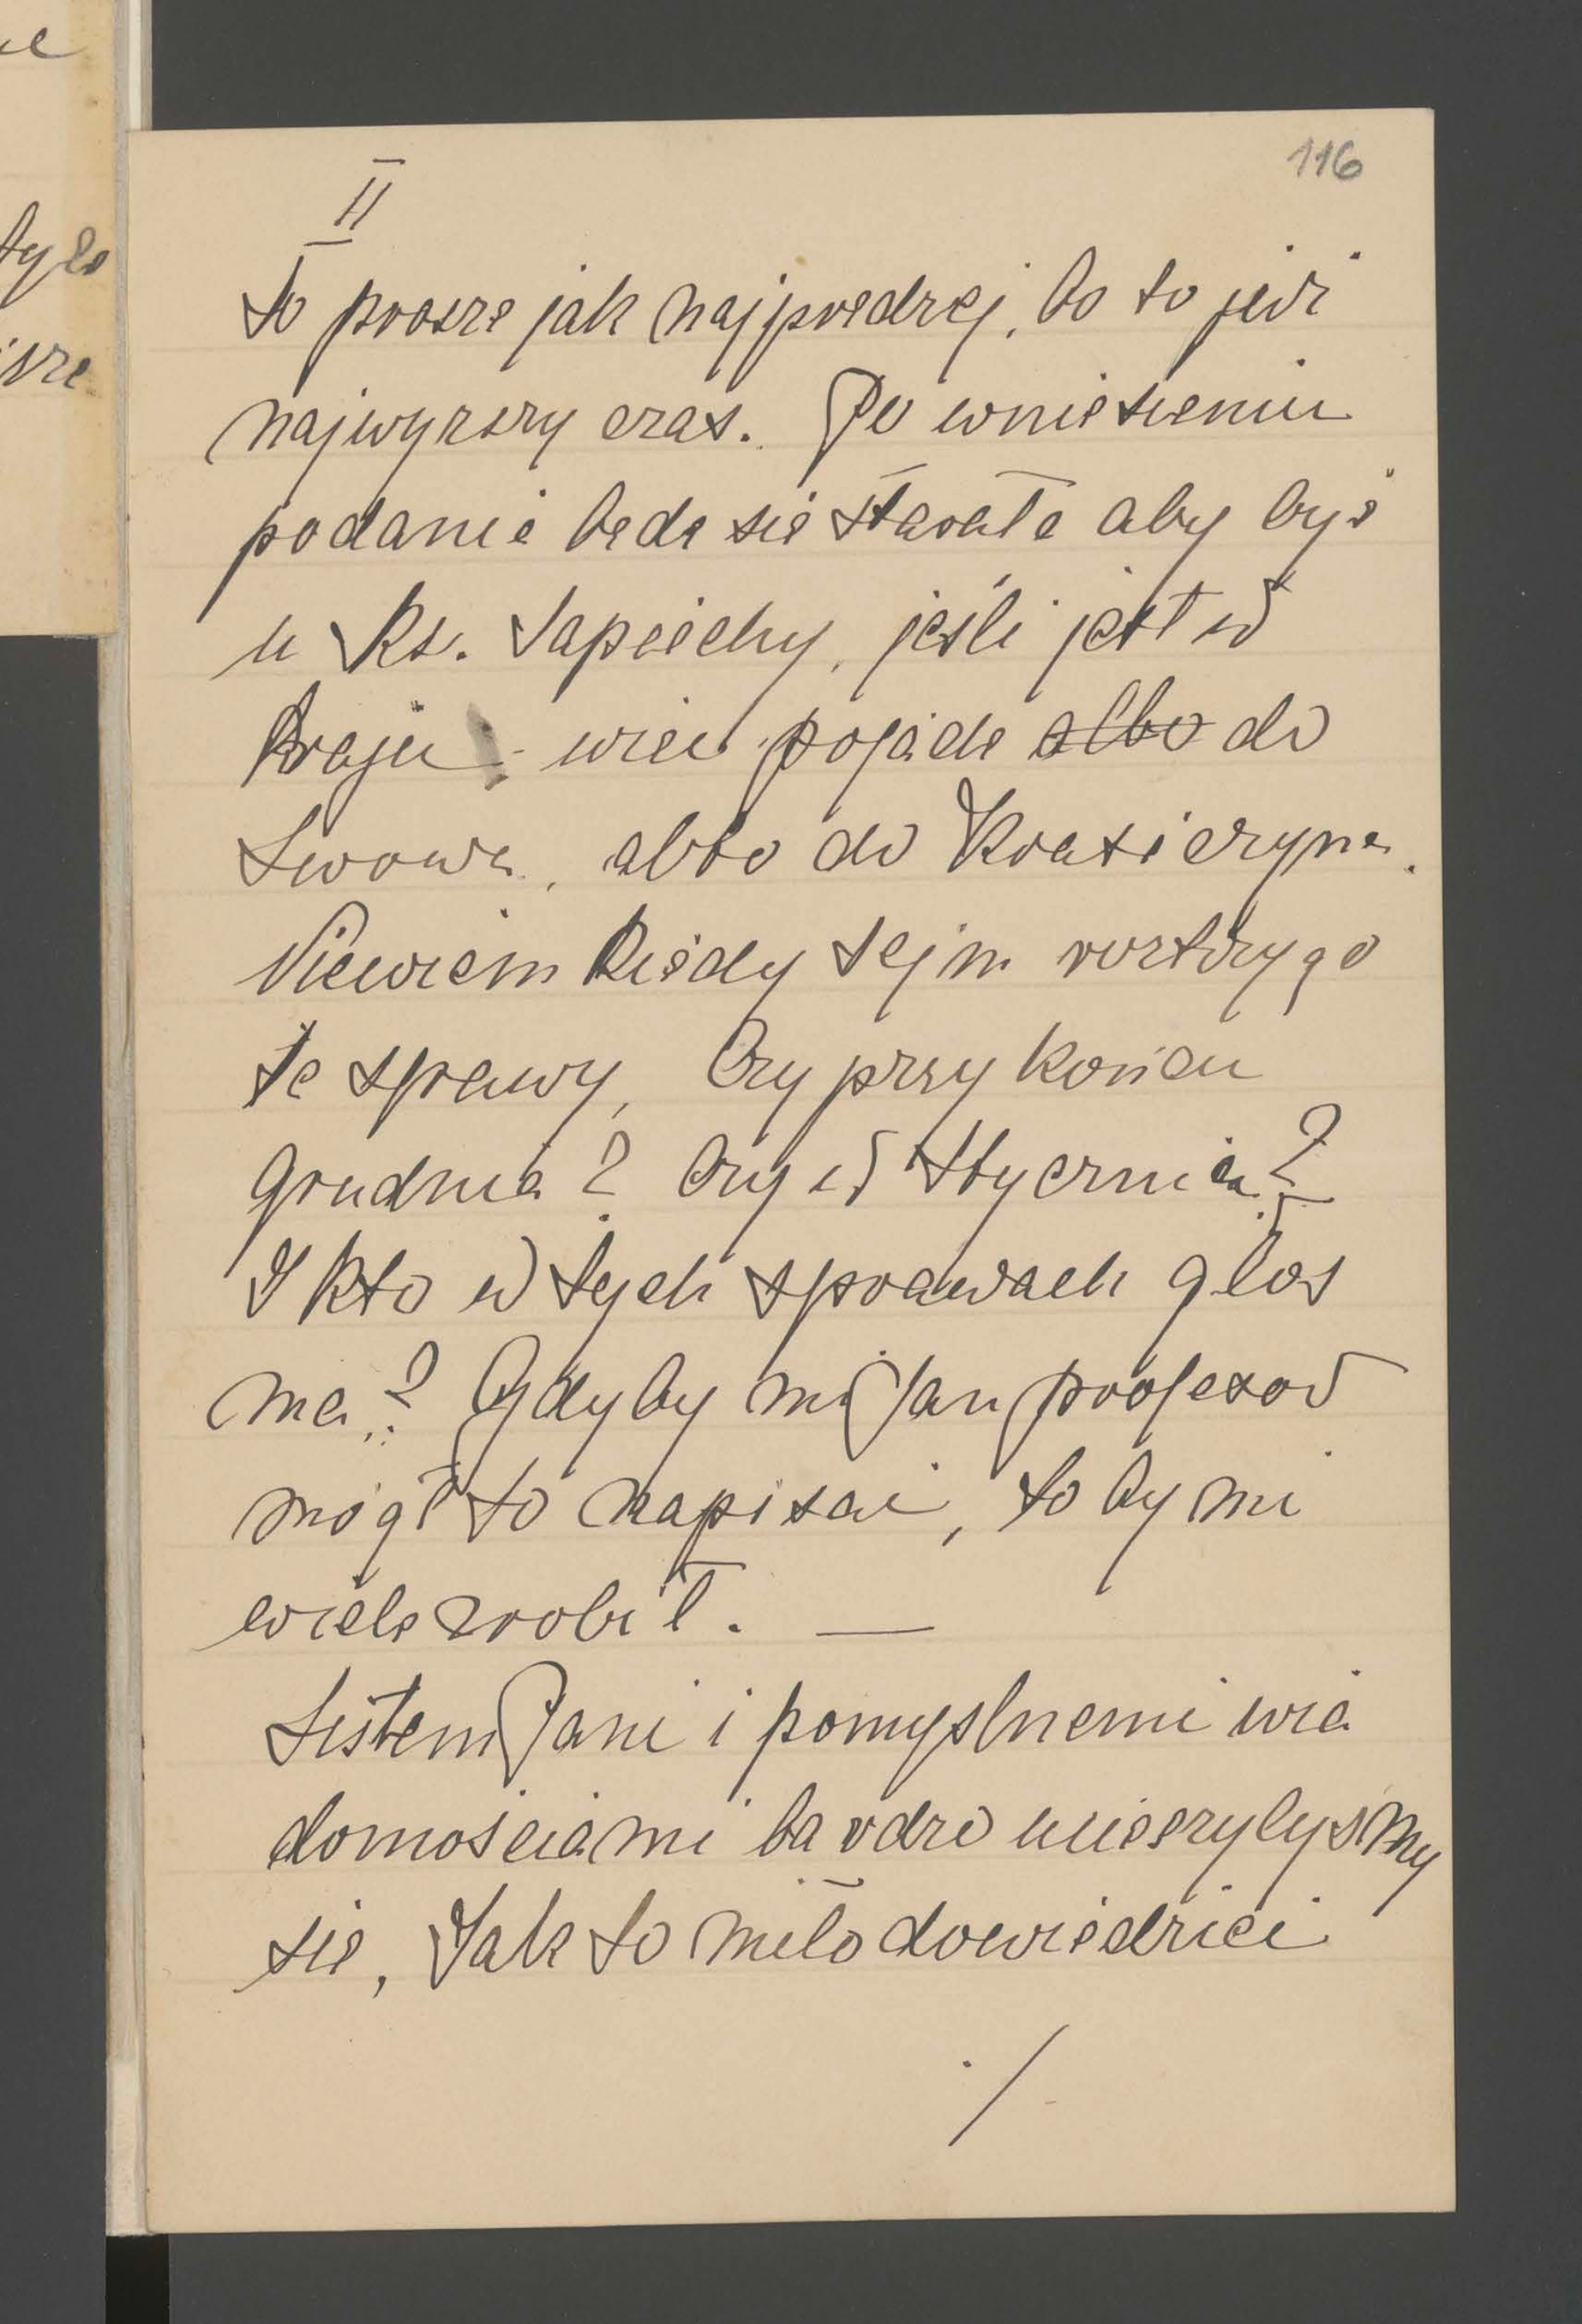 116
II
to prosze jak najprędzej, bo to już
najwyższy czas. Po wniesieniu
podania będę się starała aby być
u Ks. Sapiechy, jeśli jest w
kraju - więc pojadę albo do
Lwowa, albo do Krasiczyna.
Niewiem kiedy sejm rostrzyga
te sprawy, Czy przy końcu
grudnia? Czy w styczniu?
I kto w tych sprawach głos
ma? Gdyby mi Pan profesor
mógł to napisać, to by mi
wiele zrobił. —
Listem Pani i pomyślnemi wia
domościami bardzo ucieszyłyśmy
się, Jak to miło dowiedzieć
./